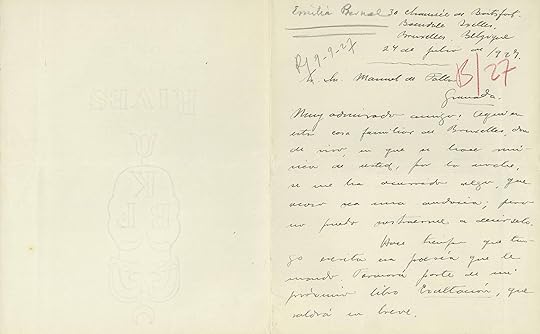 Emilia Bernal
30 Chaussée de Boitsfort.
Boendale Ixelles,
Bruxelles, Belgique
24 de julio de 1927.
R/ 9-9-27
B/27
A. Sr. Manuel de Falla
Granada.
Muy admirado amigo: Aquí en
esta casa familiar de Bruxelles, don
de vivo, en que se hace mú
sica de usted, por la noche,
se me ha ocurrido algo, que
acaso sea una audacia; pero
no puedo sustraerme a decírselo.
Hace tiempo que ten
go escrita esa poesía que le
mando. Formará parte de mi
próximo libro Exaltación, que
saldrá en breve.